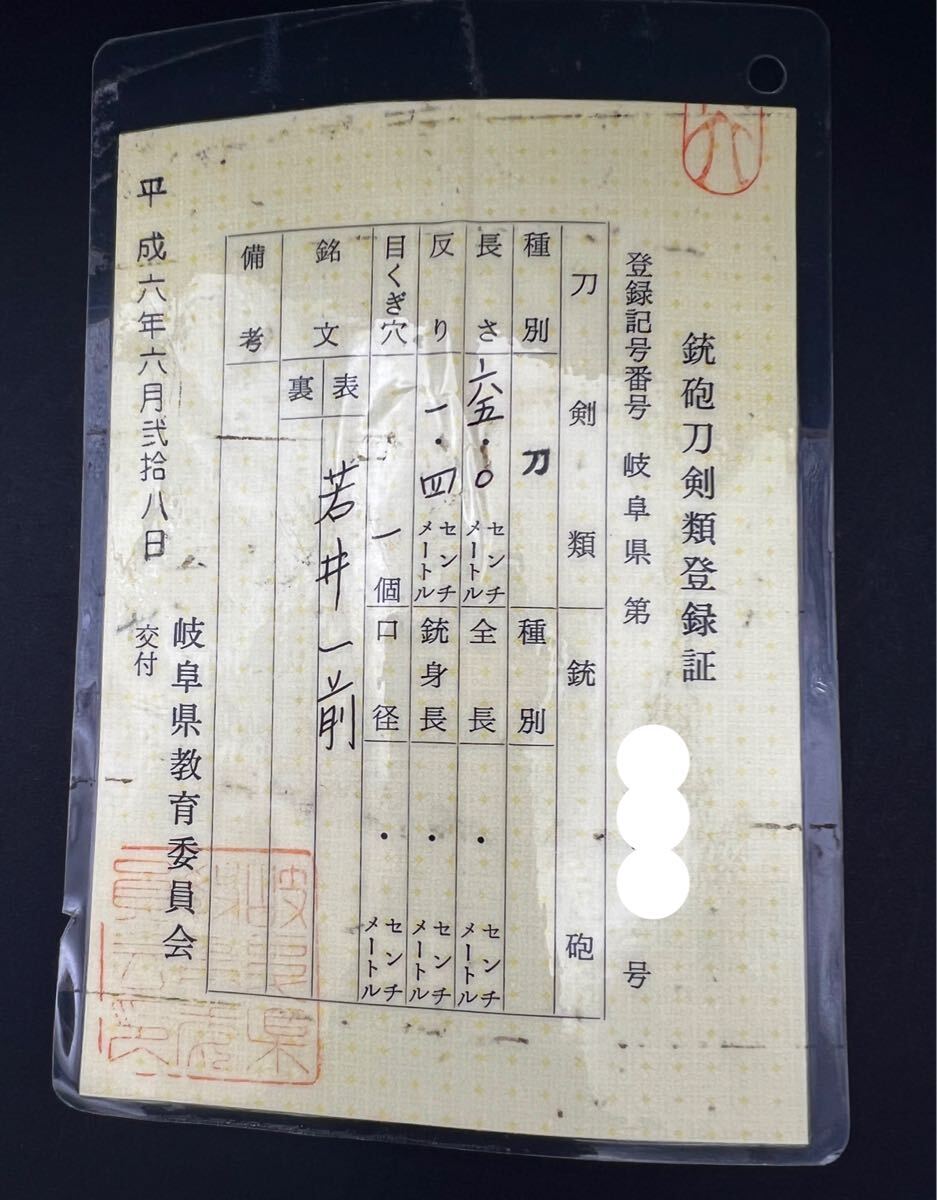 銃砲刀剣類登録証
登録記号番号 岐阜県 第 号
刀剣類
銃砲
種別 刀
種別
長さ 六五・〇 センチメートル
全長 ・ センチメートル
反り 一・四 センチメートル
銃身長 ・ センチメートル
目くぎ穴 一個
口径 ・ センチメートル
銘文
表 若井一前
裏
備考
平成六年六月弐拾八日
交付
岐阜県教育委員会